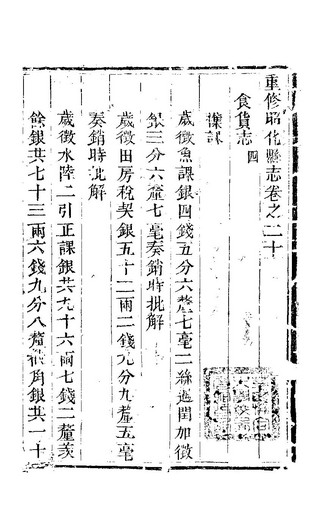 重修昭化縣志卷之二十
食貨志 四
雜課
歲徵魚課銀四錢五分六釐七毫二絲遇閏加徵
銀三分六釐七毫奏銷時批解
歲徵田房稅契銀五十二兩二錢九分九釐五毫
奏銷時批解
歲徵水陸二引正課銀共九十六兩七錢二釐羨
餘銀共七十三兩六錢九分八釐截角銀共一十